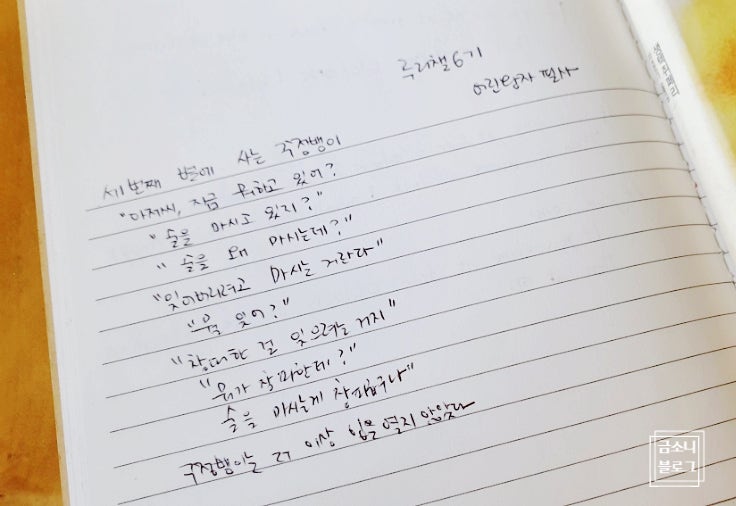 루리챌6기
어린왕자 필사
세번째 별에 사는 주정뱅이
"아저씨, 지금 뭐하고 있어?
"술을 마시고 있지?"
"술을 왜 마시는데?"
"잊어버리려고 마시는 거란다"
"뭘 잊어?"
"창피한 걸 잊으려는 거지"
"뭐가 창피한데?"
술을 마시는게 창피하구나"
주정뱅이는 더 이상 입을 열지 않았다
금소니
블로그